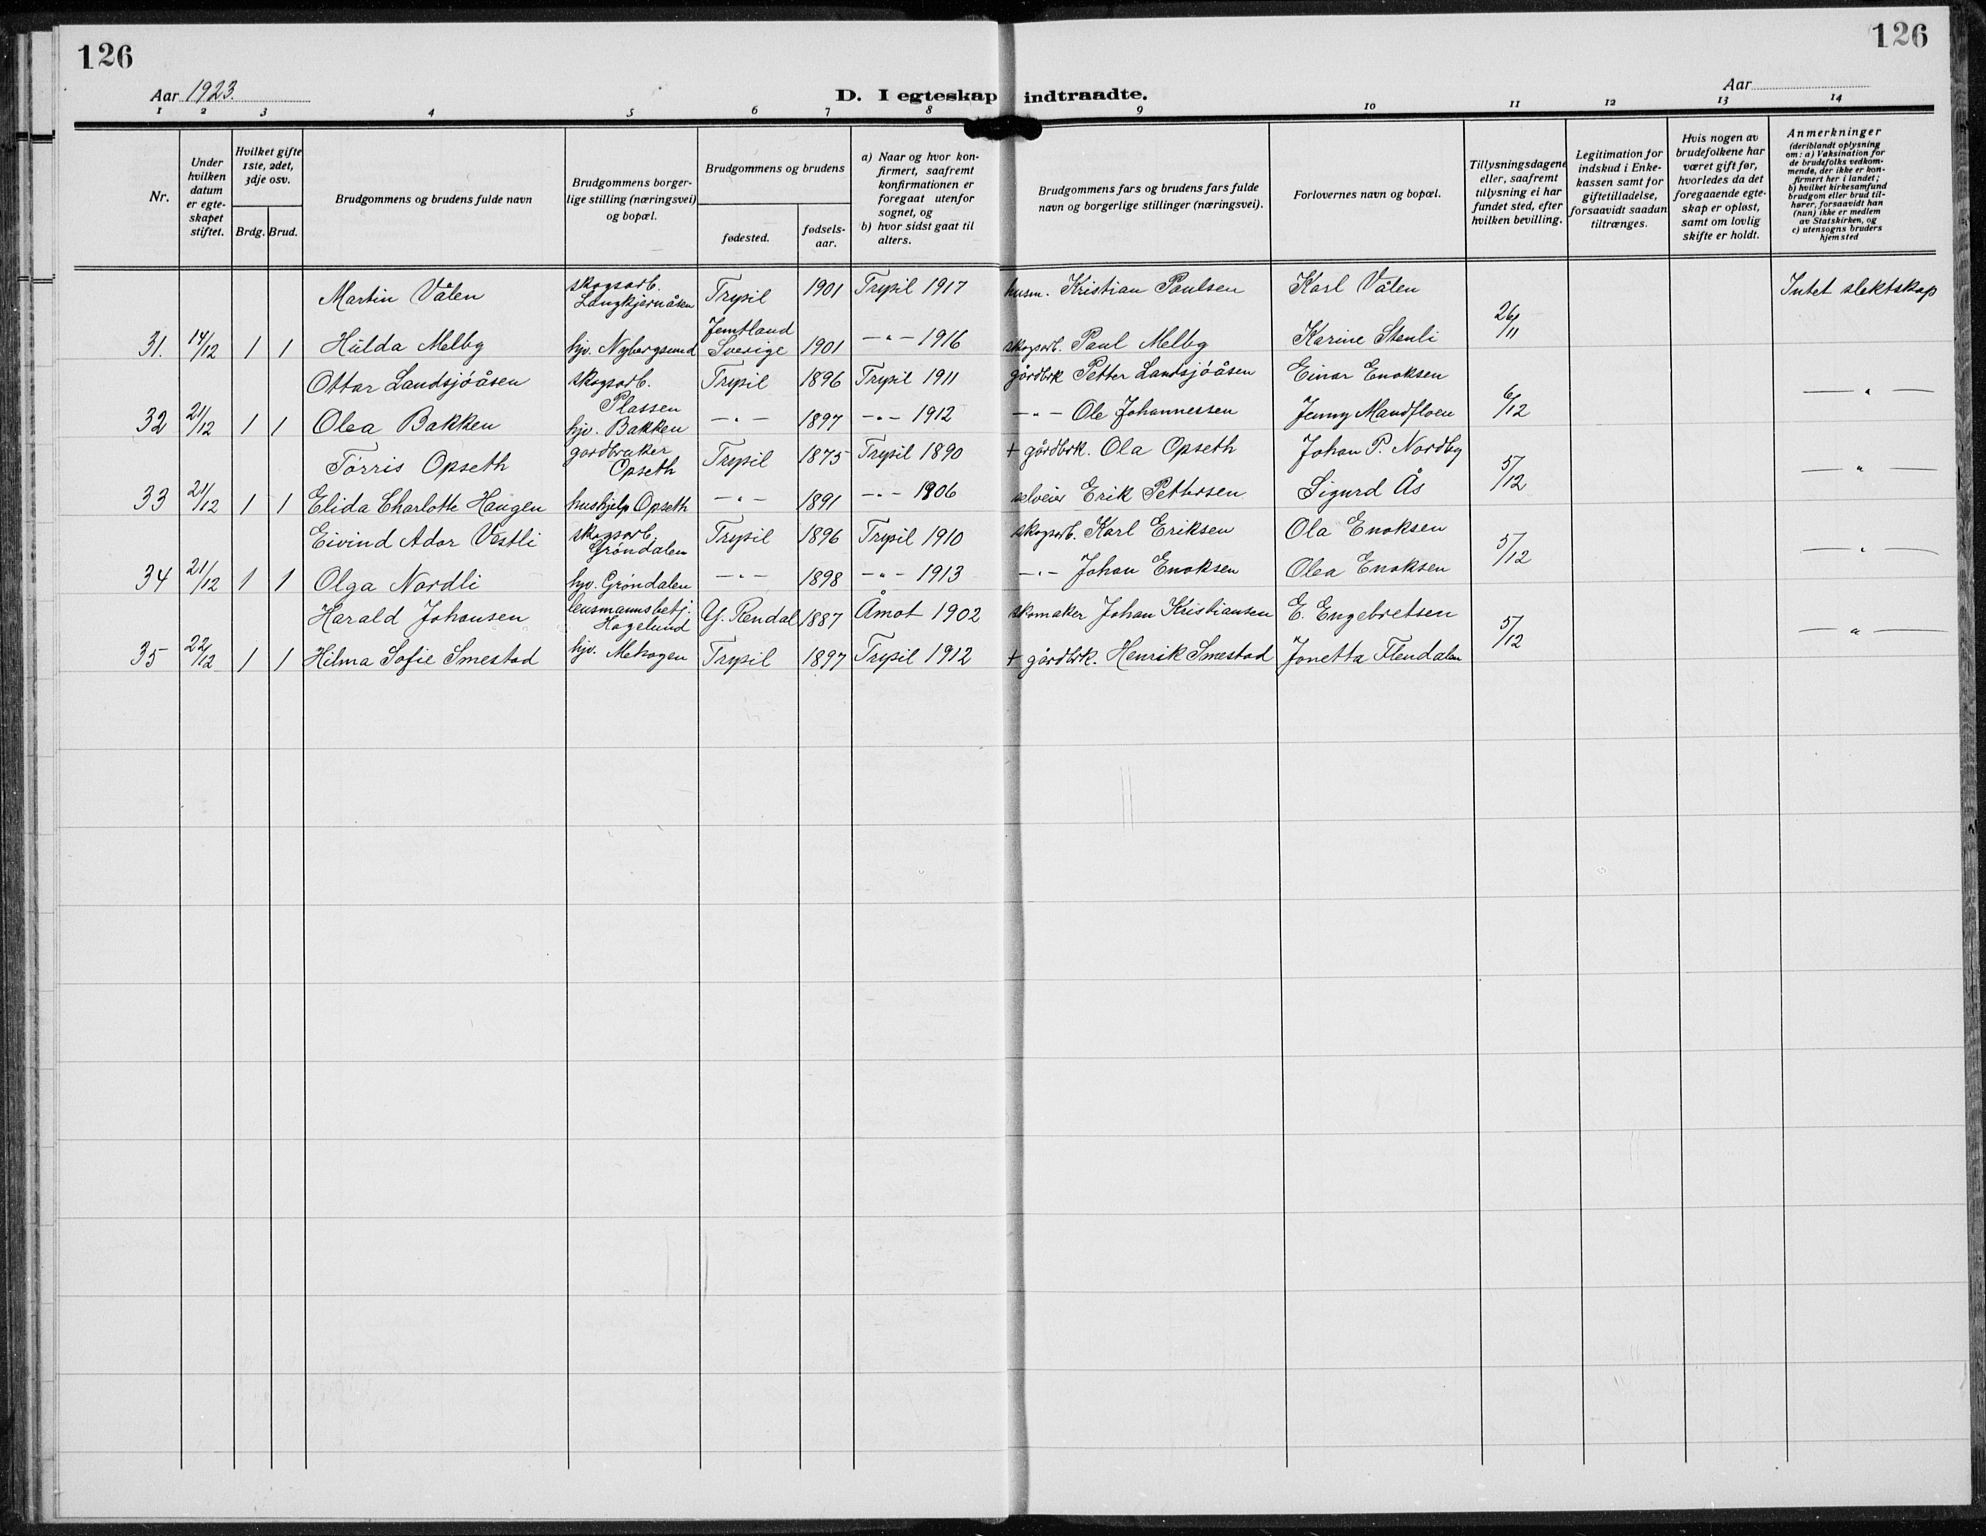 126
126
Aar 1923.
D. I egteskap indtraadte.
Aar
1 2 3 4 5 6 7 8 9 10 11 12 13 14
Nr.
Under hvilken datum er egteskapet stiftet.
Hvilket gifte 1ste, 2det, 3dje osv.
Brdg. Brud.
Brudgommens og brudens fulde navn
Brudgommens borgerlige stilling (næringsvei) og bopæl.
Brudgommens og brudens
fødested.
fødselsaar.
a) Naar og hvor konfirmert, saafremt konfirmationen er foregaat utenfor sognet, og
b) hvor sidst gaat til alters.
Brudgommens fars og brudens fars fulde navn og borgerlige stillinger (næringsvei).
Forlovernes navn og bopæl.
Tillysningsdagene eller, saafremt tillysning ei har fundet sted, efter hvilken bevilling.
Legitimation for indskud i Enkekassen samt for giftetilladelse, forsaavidt saadan tiltrænges.
Hvis nogen av brudefolkene har været gift før, hvorledes da det foregaaende egteskap er opløst, samt om lovlig skifte er holdt.
Anmerkninger
(deriblandt oplysning om: a) Vaksination for de brudefolks vedkommende, der ikke er konfirmert her i landet; b) hvilket kirkesamfund brudgom eller brud tilhører, forsaavidt han (hun) ikke er medlem av Statskirken, og c) utensogns bruders hjemsted
Martin Vålen skogsarb. Langkjernåsen Trysil 1901 Trysil 1917 husm. Kristian Paulsen Karl Vålen Intet slektskap
31. 14/12 1 1 Hulda Melby hjv. Nybergsund Jemtland Sverige 1901 —„— 1916 skogsarb. Paul Melby Karine Stenli 26/11
Ottar Landsjöåsen skogsarb. Plassen Trysil 1896 Trysil 1911 gårdbrk Petter Landsjöåsen Einar Enoksen
32 21/12 1 1 Olea Bakken hjv. Bakken —„— 1897 —„— 1912 —„— Ole Johannessen Jenny Mandfloen 6/12 —„—
Törris Opseth gardbruker Opseth Trysil 1875 Trysil 1890 + gårdbrk. Ola Opseth Johan P. Nordby
33 21/12 1 1 Elida Charlotte Haugen hushjelp Opseth —„— 1891 —„— 1906 selveier Erik Pettersen Sigurd Ås 5/12 —„—
Eivind Ador Vestli skogsarb. Gröndalen Trysil 1896 Trysil 1910 skogsarb. Karl Eriksen Ola Enoksen
34 21/12 1 1 Olga Nordli hjv. Gröndalen —„— 1898 —„— 1913 —„— Johan Enoksen Olea Enoksen 5/12 —„—
Harald Johansen lensmannsbetj. Hagelund Y. Rendal 1887 Åmot 1902 skomaker Johan Kristiansen E. Engebretsen
35 22/12 1 1 Hilma Sofie Smestad hjv. Mehagen Trysil 1897 Trysil 1912 + gårdbrk. Henrik Smestad Jonetta Flendalen 5/12 —„—